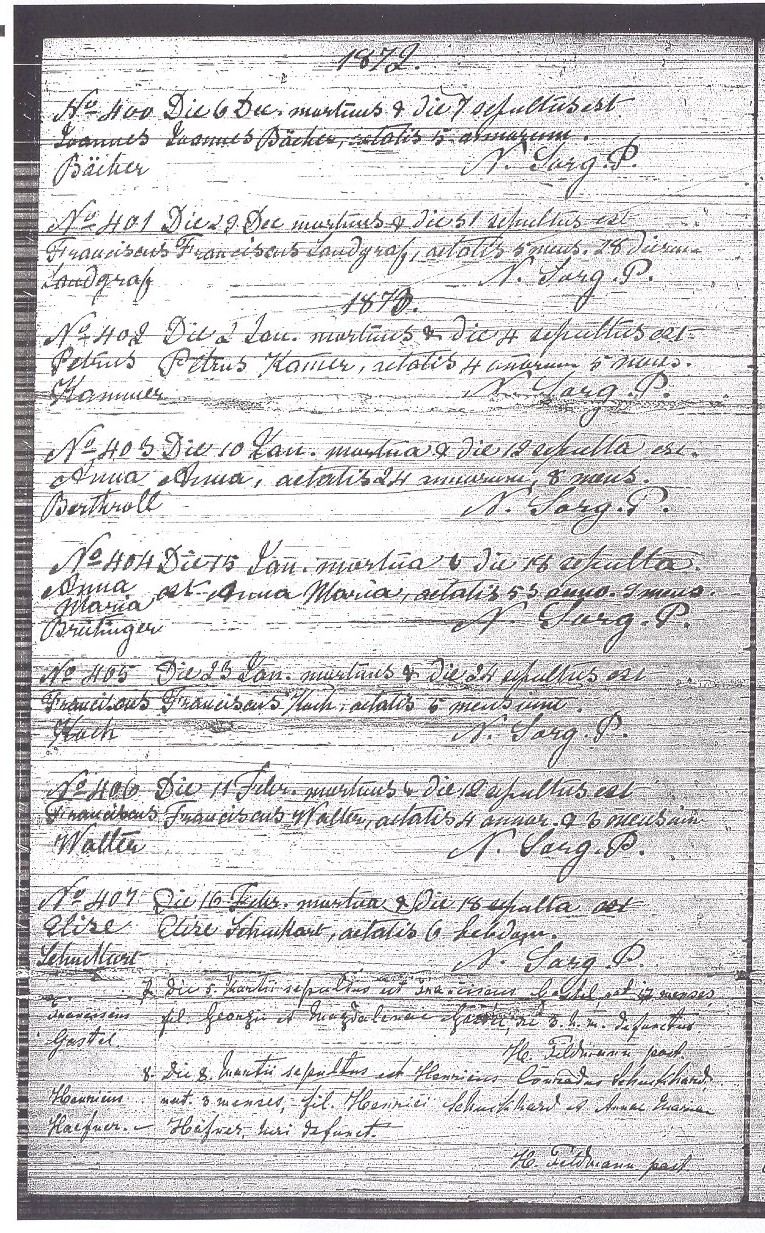 1872.
No 400 Die 6 Dec. mortuus & die 7 sepultus est
Joannes Joannes Bäcker, aetatis 5 annorum.
Bäcker N. Sorg. P.
No 401 Die 29 Dec mortuus & die 31 sepultus est
Franciscus Franciscus Landgraf, aetatis 5 mens. 28 dierum
Landgraf N. Sorg. P.
1873.
No 402 Die 2 Jan. mortuus & die 4 sepultus est
Petrus Petrus Kamer, aetatis 4 annorum 5 mens.
Kammer N. Sorg. P.
No 403 Die 10 Jan. mortua & die 12 sepulta est.
Anna Anna, aetatis 24 annorum, 8 mens.
Berthroll N. Sorg. P.
No 404 Die 15 Jan. mortua & die 18 sepulta
Anna est Anna Maria, aetatis 53 anno. 9 mens.
Maria
Brütinger N. Sorg. P.
No 405 Die 23 Jan. mortuus & die 24 sepultus est
Franciscus Franciscus Koch, aetatis 5 mensium.
Koch N. Sorg. P.
No 406 Die 11 Febr. mortuus & die 12 sepultus est
Franciscus Franciscus Walter, aetatis 4 annor. & 3 mensium
Walter N. Sorg. P.
No 407 Die 16 Febr. mortua & die 18 sepulta est
Elise Elise Schuckart, aetatis 6 hebdom.
Schuckart N. Sorg P.
7 Die 5. Martii sepultus est Franciscus Gastel menses,
Franciscus fil. Georgii et Magdalenae die 3. h. m. defunctus
Gastel. H. Feldmann past.
8. Die 8. Martii sepultus est Henricus Conradus Schuckhard,
Henricus nat. 3 menses, fil. Henrici Schuckhard et Annae Mariae
Haefner. Hafner, heri defunct.
H. Feldmann past.